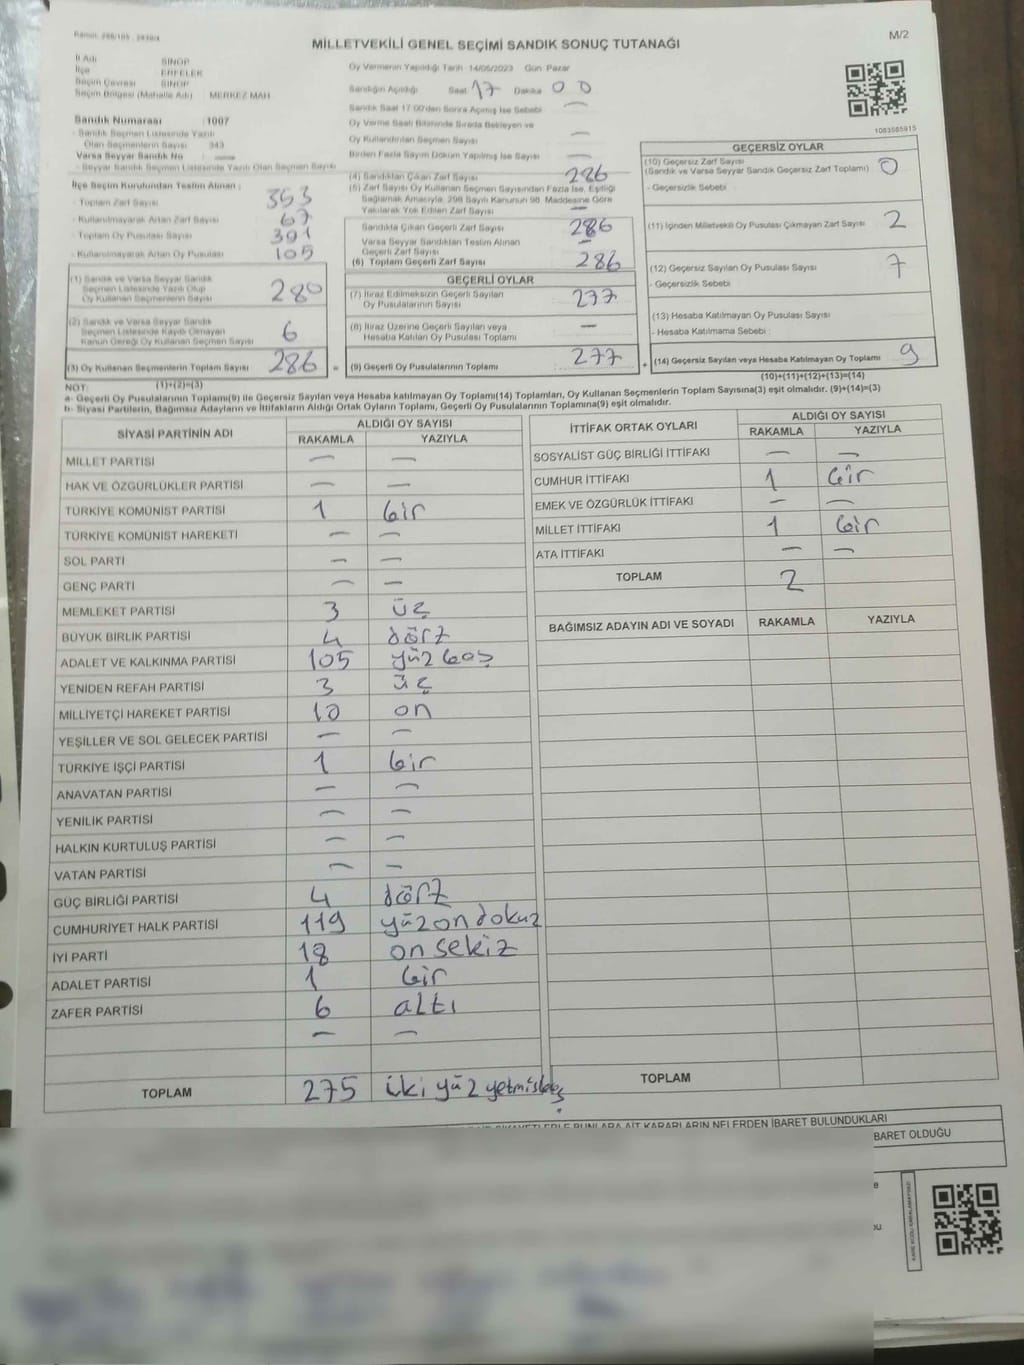 MİLLETVEKİLİ GENEL SEÇİMİ SANDIK SONUÇ TUTANAĞI
M/2
İl Adı : SİNOP
İlçe : ERFELEK
Seçim Çevresi : SİNOP
Seçim Bölgesi (Mahalle Adı) : MERKEZ MAH
Sandık Numarası : 1007
- Sandık Seçmen Listesinde Yazılı
Olan Seçmenlerin Sayısı : 343
Varsa Seyyar Sandık No : —
- Seyyar Sandık Seçmen Listesinde Yazılı Olan Seçmen Sayısı :
İlçe Seçim Kurulundan Teslim Alınan :
- Toplam Zarf Sayısı 353
- Kullanılmayarak Artan Zarf Sayısı 67
- Toplam Oy Pusulası Sayısı 391
- Kullanılmayarak Artan Oy Pusulası 105
(1) Sandık ve Varsa Seyyar Sandık
Seçmen Listesinde Yazılı Olup
Oy Kullanan Seçmenlerin Sayısı 280
(2) Sandık ve Varsa Seyyar Sandık
Seçmen Listesinde Kayıtlı Olmayan
Kanun Gereği Oy Kullanan Seçmen Sayısı 6
(3) Oy Kullanan Seçmenlerin Toplam Sayısı 286 =
(1)+(2)=(3)
Oy Vermenin Yapıldığı Tarih :14/05/2023 Gün: Pazar
Sandığın Açıldığı Saat 17 Dakika 00
Sandık Saat 17:00'den Sonra Açılmış İse Sebebi —
Oy Verme Saati Bitiminde Sırada Bekleyen ve
Oy Kullandırılan Seçmen Sayısı —
Birden Fazla Sayım Döküm Yapılmış İse Sayısı —
(4) Sandıktan Çıkan Zarf Sayısı 286
(5) Zarf Sayısı Oy Kullanan Seçmen Sayısından Fazla İse, Eşitliği
Sağlamak Amacıyla, 298 Sayılı Kanunun 98. Maddesine Göre
Yakılarak Yok Edilen Zarf Sayısı —
Sandıkta Çıkan Geçerli Zarf Sayısı 286
Varsa Seyyar Sandıktan Teslim Alınan
Geçerli Zarf Sayısı —
(6) Toplam Geçerli Zarf Sayısı 286
GEÇERLİ OYLAR
(7) İtiraz Edilmeksizin Geçerli Sayılan
Oy Pusulalarının Sayısı 277
(8) İtiraz Üzerine Geçerli Sayılan veya
Hesaba Katılan Oy Pusulası Toplamı —
(9) Geçerli Oy Pusulalarının Toplamı 277 +
1083585915
GEÇERSİZ OYLAR
(10) Geçersiz Zarf Sayısı
(Sandık ve Varsa Seyyar Sandık Geçersiz Zarf Toplamı) 0
- Geçersizlik Sebebi :
(11) İçinden Milletvekili Oy Pusulası Çıkmayan Zarf Sayısı 2
(12) Geçersiz Sayılan Oy Pusulası Sayısı 7
- Geçersizlik Sebebi :
(13) Hesaba Katılmayan Oy Pusulası Sayısı
- Hesaba Katılmama Sebebi :
(14) Geçersiz Sayılan veya Hesaba Katılmayan Oy Toplamı 9
(10)+(11)+(12)+(13)=(14)
NOT:
a- Geçerli Oy Pusulalarının Toplamı(9) ile Geçersiz Sayılan veya Hesaba katılmayan Oy Toplamı(14) Toplamları, Oy Kullanan Seçmenlerin Toplam Sayısına(3) eşit olmalıdır. (9)+(14)=(3)
b- Siyasi Partilerin, Bağımsız Adayların ve İttifakların Aldığı Ortak Oyların Toplamı, Geçerli Oy Pusulalarının Toplamına(9) eşit olmalıdır.
SİYASİ PARTİNİN ADI ALDIĞI OY SAYISI
RAKAMLA YAZIYLA
MİLLET PARTİSİ — —
HAK VE ÖZGÜRLÜKLER PARTİSİ — —
TÜRKİYE KOMÜNİST PARTİSİ 1 bir
TÜRKİYE KOMÜNİST HAREKETİ — —
SOL PARTİ — —
GENÇ PARTİ — —
MEMLEKET PARTİSİ 3 üç
BÜYÜK BİRLİK PARTİSİ 4 dört
ADALET VE KALKINMA PARTİSİ 105 yüz beş
YENİDEN REFAH PARTİSİ 3 üç
MİLLİYETÇİ HAREKET PARTİSİ 10 on
YEŞİLLER VE SOL GELECEK PARTİSİ — —
TÜRKİYE İŞÇİ PARTİSİ 1 bir
ANAVATAN PARTİSİ — —
YENİLİK PARTİSİ — —
HALKIN KURTULUŞ PARTİSİ — —
VATAN PARTİSİ — —
GÜÇ BİRLİĞİ PARTİSİ 4 dört
CUMHURİYET HALK PARTİSİ 119 yüz on dokuz
İYİ PARTİ 18 on sekiz
ADALET PARTİSİ 1 bir
ZAFER PARTİSİ 6 altı
— —
TOPLAM 275 iki yüz yetmişbeş
İTTİFAK ORTAK OYLARI ALDIĞI OY SAYISI
RAKAMLA YAZIYLA
SOSYALİST GÜÇ BİRLİĞİ İTTİFAKI — —
CUMHUR İTTİFAKI 1 bir
EMEK VE ÖZGÜRLÜK İTTİFAKI — —
MİLLET İTTİFAKI 1 bir
ATA İTTİFAKI — —
TOPLAM 2
BAĞIMSIZ ADAYIN ADI VE SOYADI RAKAMLA YAZIYLA
TOPLAM
BUNLARA AİT KARARLARIN NELERDEN İBARET BULUNDUKLARI
BARET OLDUĞU